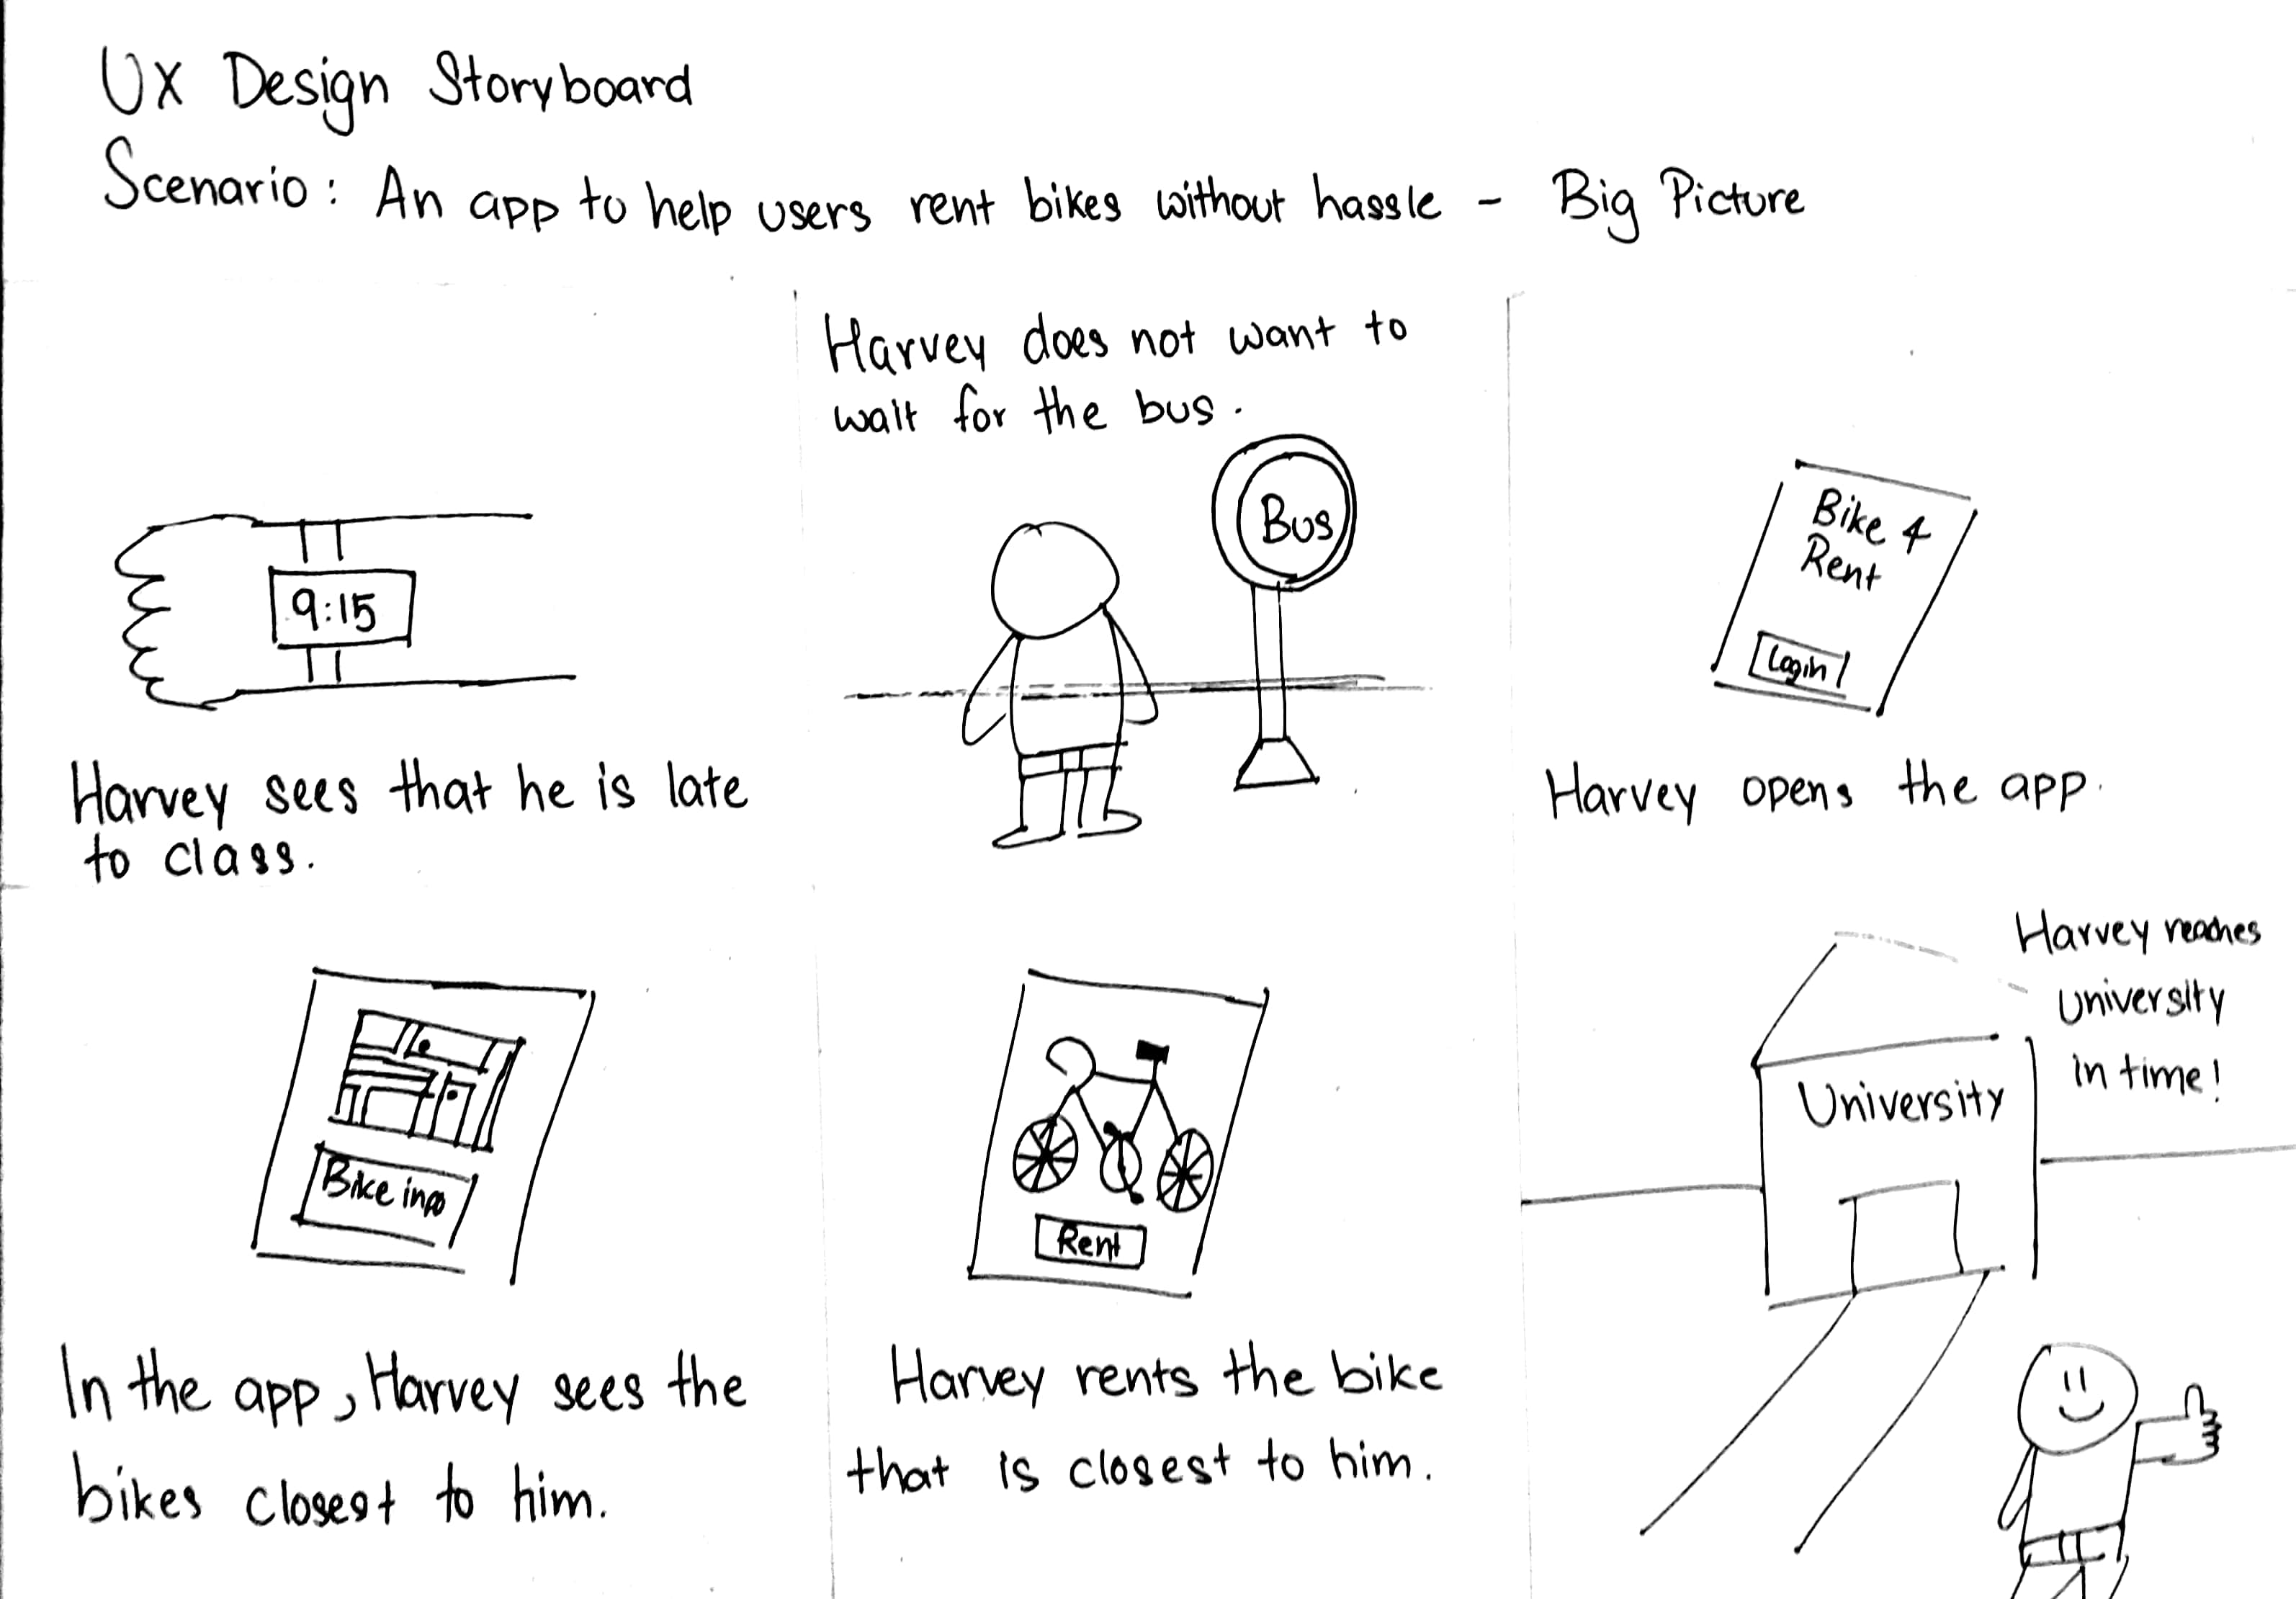 UX Design Storyboard
Scenario: An app to help users rent bikes without hassle - Big Picture
9:15
Harvey sees that he is late
to class.
Harvey does not want to
wait for the bus.
Bus
Bike 4
Rent
Login
Harvey opens the app.
Bike info
In the app, Harvey sees the
bikes closest to him.
Rent
Harvey rents the bike
that is closest to him.
Harvey reaches
University
in time!
University